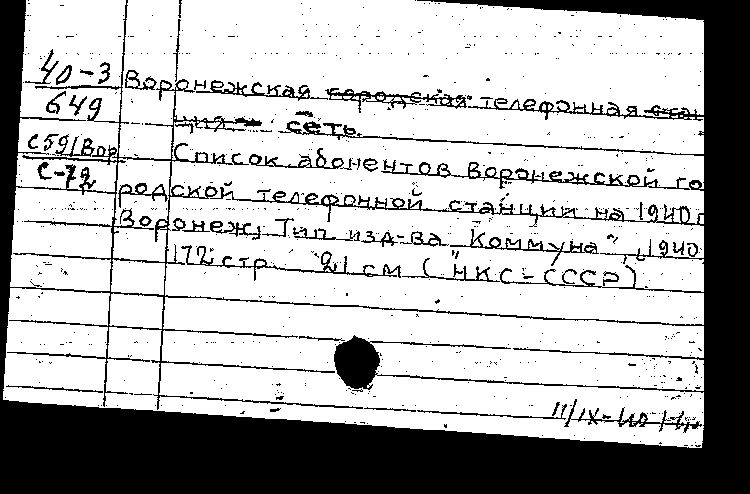 40-3
649
С59/Вор
С-79
Воронежская городская телефонная стан
ция сеть
Список абонентов Воронежской го
родской телефонной станции на 1940 г
Воронеж, Тип изд-ва "Коммуна", 1940,
172 стр 21 см (НКС-СССР)
11/IX-40